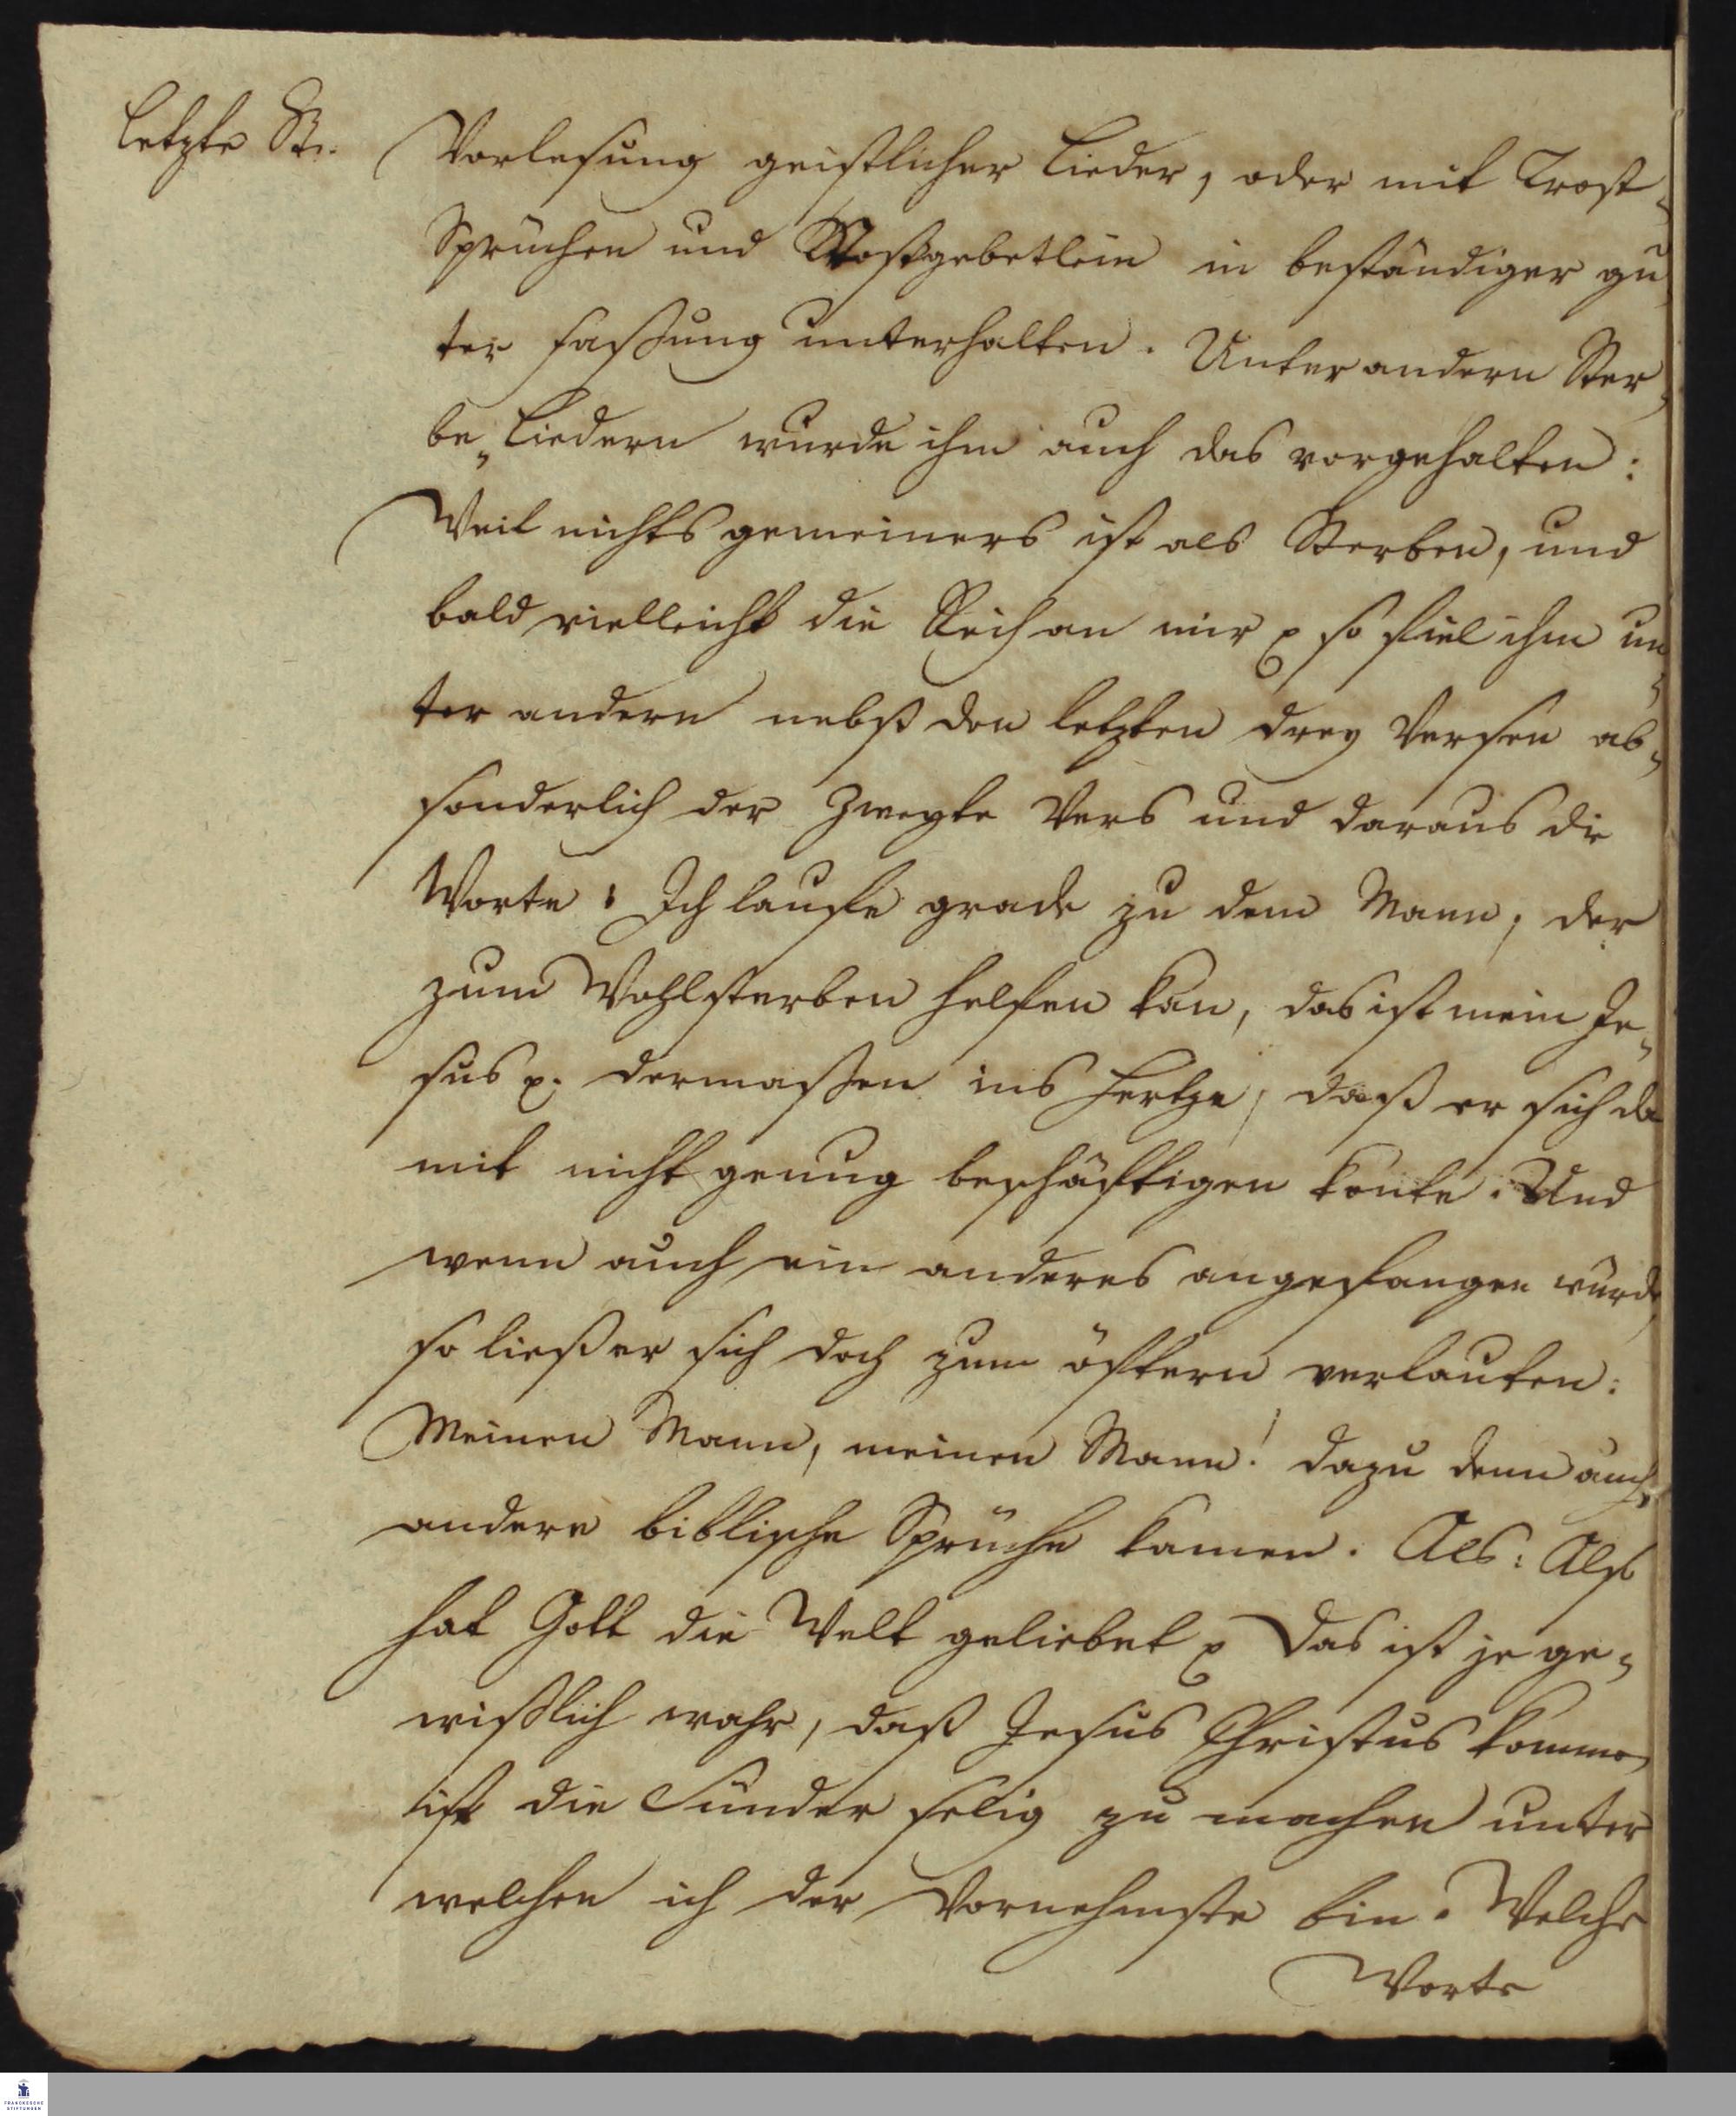 letzte St.
Vorlesung geistlicher Lieder, oder mit Trost¬
Sprüchen und Stoßgebetlein in beständiger gu¬
ter Faßung unterhalten. Unter andern Ster¬
be¬Liedern wurde ihm auch das vorgehalten:
Weil nichts gemeiners ist als Sterben, und
bald vielleicht die Reih an mir p so fiel ihm un¬
ter andern nebst den letzten drey Versen ab¬
sonderlich der Zweyte Vers und daraus die
Worte: Ich lauffe grade zu dem Mann, der
zum Wohlsterben helfen kan, das ist mein Je¬
sus p. dermaßen ins Hertze, daß er sich da
mit nicht genug beschäftigen konte. Und
wenn auch ein anderes angefangen wurde,
so ließ er sich doch zum öftern verlauten:
Meinen Mann, meinen Mann! dazu denn auch
andere biblische Sprüche kamen. Als: Also
hat Gott die Welt geliebet p Das ist je ge¬
wißlich wahr, daß Jesus Christus kommen
ist die Sünder selig zu machen unter
welchen ich der Vornehmste bin. Welche
Worte
FRANCKESCHE
STIFTUNGEN